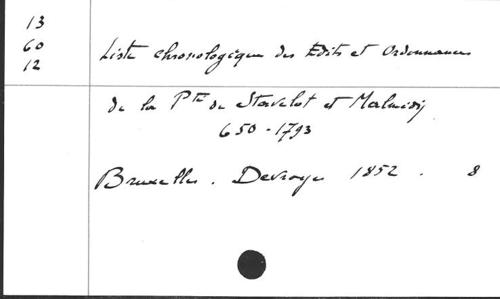 13
60
12
Liste chronologique des Edits et Ordonnances
de la Pté de Stavelot et Malmédy
650-1793
Bruxelles. Devroye 1852. 8